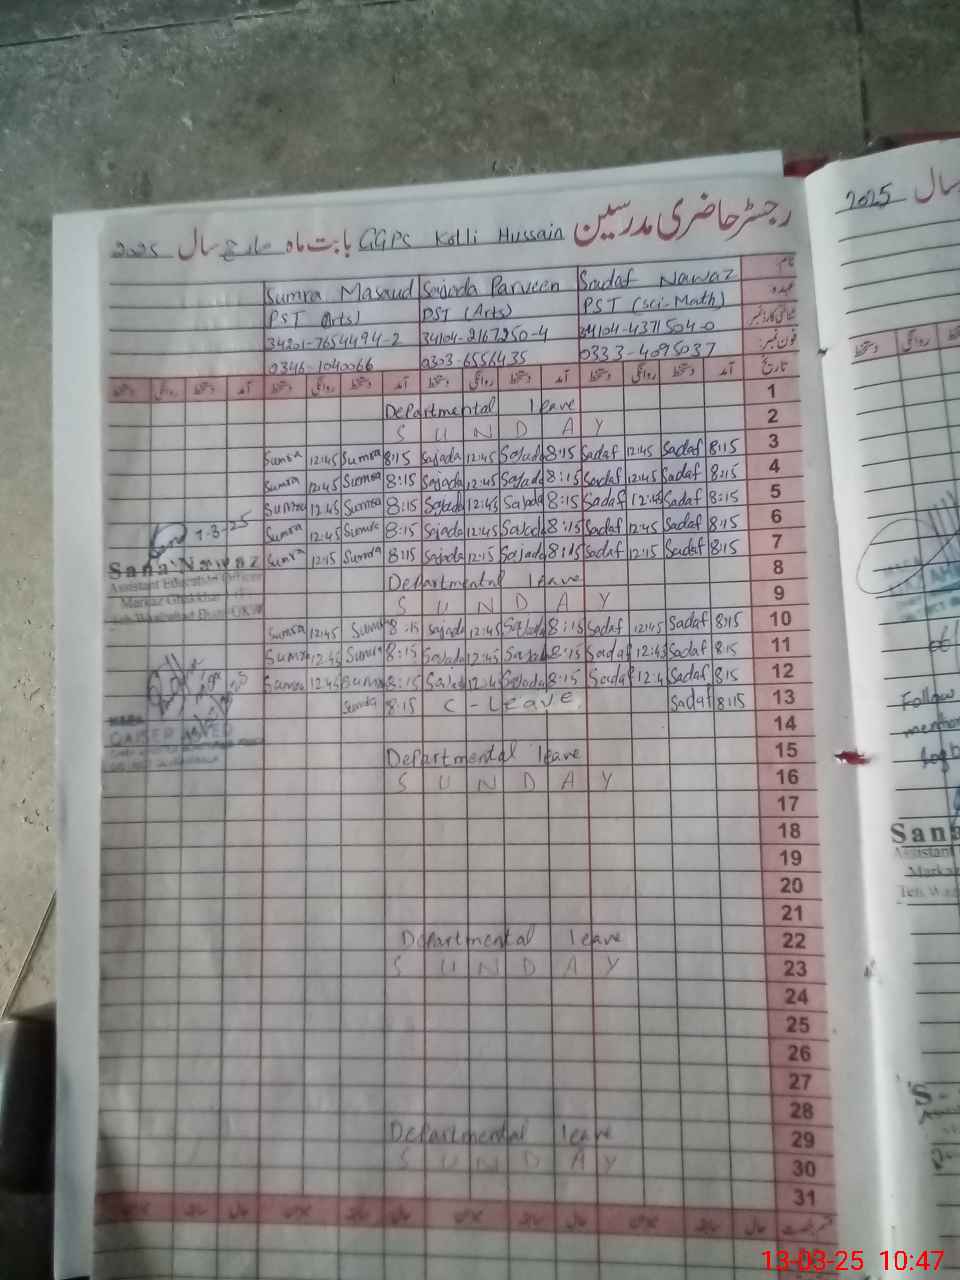 رجسٹر حاضری مدرسین GGPS Kolli Hussain بابت ماہ مارچ سال 2025
نام: Sadaf Nawaz Sajada Parveen Sumra Masaud
عہدہ PST (Sci-Math) PST (Arts) PST (Arts)
شناختی کارڈ نمبر 34104-4371504-0 34104-2167250-4 34201-7654494-2
فون نمبر: 0333-4095037 0303-6556435 0346-1040066
تاریخ آمد دستخط روانگی دستخط آمد دستخط روانگی دستخط آمد دستخط روانگی دستخط آمد دستخط روانگی دستخط
1 Departmental leave
2 SUNDAY
3 8:15 Sadaf 12:45 Sadaf 8:15 Sajada 12:45 Sajada 8:15 Sumra 12:45 Sumra
4 8:15 Sadaf 12:45 Sadaf 8:15 Sajada 12:45 Sajada 8:15 Sumra 12:45 Sumra
5 8:15 Sadaf 12:45 Sadaf 8:15 Sajada 12:45 Sajada 8:15 Sumra 12:45 Sumra
6 8:15 Sadaf 12:45 Sadaf 8:15 Sajada 12:45 Sajada 8:15 Sumra 12:45 Sumra
7 8:15 Sadaf 12:15 Sadaf 8:15 Sajada 12:15 Sajada 8:15 Sumra 12:15 Sumra
7-3-25
Sana Nawaz
Assistant Education Officer
Markaz
8 Departmental leave
9 SUNDAY
10 8:15 Sadaf 12:45 Sadaf 8:15 Sajada 12:45 Sajada 8:15 Sumra 12:45 Sumra
11 8:15 Sadaf 12:45 Sadaf 8:15 Sajada 12:45 Sajada 8:15 Sumra 12:45 Sumra
12 8:15 Sadaf 12:4 Sadaf 8:15 Sajada 12:4 Sajada 8:15 Sumra 12:45 Sumra
13 8:15 Sadaf C-Leave 8:15 Sumra
14
15 Departmental leave
16 SUNDAY
17
18
19
20
21
22 Departmental leave
23 SUNDAY
24
25
26
27
28
29 Departmental leave
30 SUNDAY
31
سال 2025
دستخط روانگی دستخط
Follow
Sana
Assistant
13-03-25 10:47